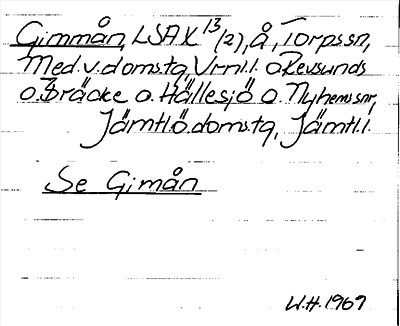 Gimmån, LSAX 13/(2), å, Torps sn,
Med.v.doms.tg, Vrnl.l. o Revsunds
o. Bräcke o. Hällesjö o. Nyhems snr,
Jämtl.ö.doms.tg, Jämtl.l.
Se Gimån
W.H. 1967